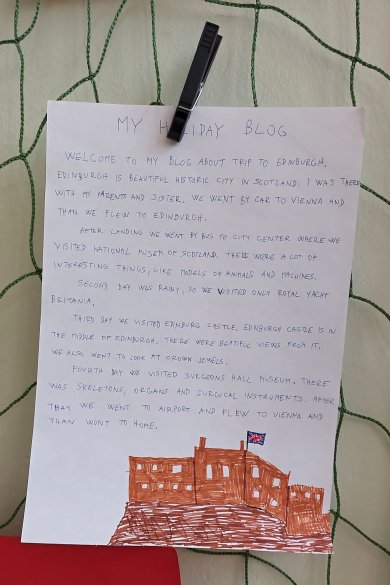 MY HOLIDAY BLOG
WELCOME TO MY BLOG ABOUT TRIP TO EDINBURGH.
EDINBURGH IS BEAUTIFUL HISTORIC CITY IN SCOTLAND. I WAS THERE
WITH MY PARENTS AND SISTER. WE WENT BY CAR TO VIENNA AND
THAN WE FLEW TO EDINBURGH.
AFTER LANDING WE WENT BY BUS TO CITY CENTER WHERE WE
VISITED NATIONAL MUSEM OF SCOTLAND. THERE WERE A LOT OF
INTERESTING THINGS, LIKE MODELS OF ANIMALS AND MACHINES.
SECOND DAY WAS RAINY, SO WE VISITED ONLY ROYAL YACHT
BRITANIA.
THIRD DAY WE VISITED EDINBURG CASTLE. EDINBURGH CASTLE IS IN
THE MIDDLE OF EDINBURGH. THERE WERE BEATIFUL VIEWS FROM IT.
WE ALSO WENT TO LOOK AT CROWN JEWELS.
FOURTH DAY WE VISITED SURGEONS HALL MUSEUM. THERE
WAS SKELETONS, ORGANS AND SURGICAL INSTRUMENTS. AFTER
THAT WE WENT TO AIRPORT AND FLEW TO VIENNA AND
THAN WONT TO HOME.